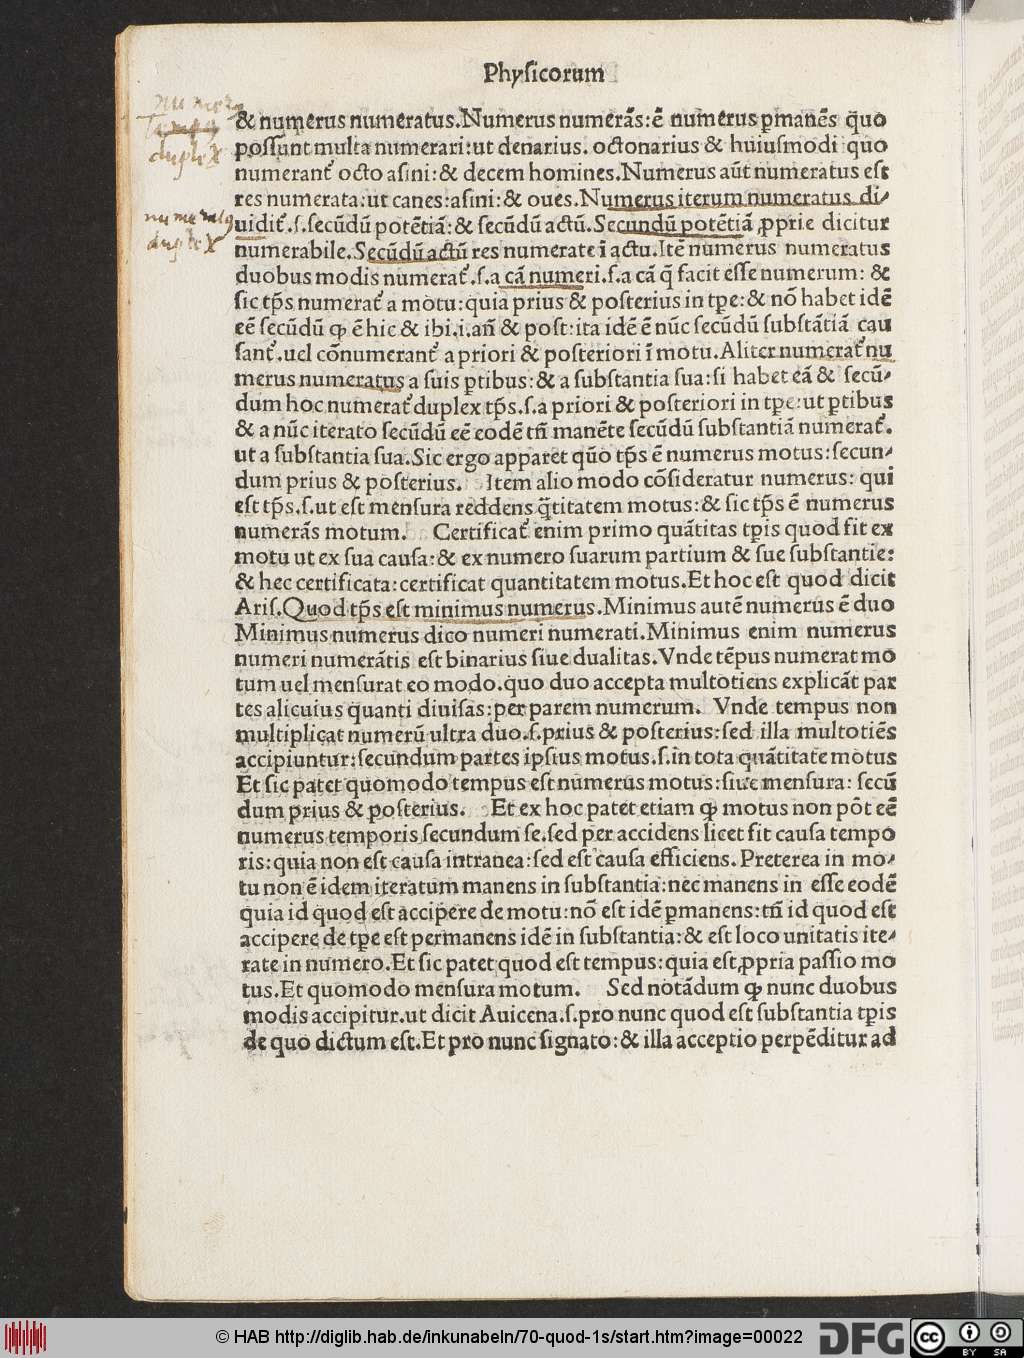 Phyſicorum
numerꝰ
duplex
& numerus numeratus.Numerus numerãs:ẽ numerus ꝑmanẽs quo
poſſunt multa numerari:ut denarius. octonarius & huiuſmodi quo
numerant᷑ octo aſini:& decem homines.Numerus aũt numeratus eſt
res numerata:ut canes:aſini:& oues.Numerus iterum numeratus di⸗
numeratꝰ
duplex
uidit᷑.ſ.ſecũdũ potẽtiã:& ſecũdũ actũ.Secundũ potẽtiã ꝓprie dicitur
numerabile.Secũdũ actũ res numerate ĩ actu.Itẽ numerus numeratus
duobus modis numerat᷑.ſ.a cã numeri.ſ.a cã q̃ facit eſſe numerum: &
ſic tp̃s numerat᷑ a motu:quia prius & poſterius in tꝑe:& nõ habet idẽ
eẽ ſecũdũ ꝙ ẽ hic & ibi.i.añ & poſt:ita idẽ ẽ nũc ſecũdũ ſubſtãtiã cau
ſant᷑.uel cõnumerant᷑ a priori & poſteriori ĩ motu.Aliter numerat᷑ nu
merus numeratus a ſuis ꝑtibus:& a ſubſtantia ſua:ſi habet eã & ſecũ⸗
dum hoc numerat᷑ duplex tp̃s.ſ.a priori & poſteriori in tꝑe:ut ꝑtibus
& a nũc iterato ſecũdũ eẽ eodẽ tñ manẽte ſecũdũ ſubſtantiã numerat᷑.
ut a ſubſtantia ſua.Sic ergo apparet quõ tp̃s ẽ numerus motus:ſecun⸗
dum prius & poſterius. Item alio modo cõſideratur numerus: qui
eſt tp̃s.ſ.ut eſt menſura reddens q̃titatem motus:& ſic tp̃s ẽ numerus
numerãs motum. Certificat᷑ enim primo quãtitas tꝑis quod fit ex
motu ut ex ſua cauſa:& ex numero ſuarum partium & ſue ſubſtantie:
& hec certificata:certificat quantitatem motus.Et hoc eſt quod dicit
Ariſ.Quod tp̃s eſt minimus numerus.Minimus autẽ numerus ẽ duo
Minimus numerus dico numeri numerati.Minimus enim numerus
numeri numerãtis eſt binarius ſiue dualitas.Vnde tẽpus numerat mo
tum uel menſurat eo modo.quo duo accepta multotiens explicãt par
tes alicuius quanti diuiſas:per parem numerum. Vnde tempus non
multiplicat numerũ ultra duo.ſ.prius & poſterius:ſed illa multotiẽs
accipiuntur:ſecundum partes ipſius motus.ſ.in tota quãtitate motus
Et ſic patet quomodo tempus eſt numerus motus:ſiue menſura: ſecũ
dum prius & poſterius. Et ex hoc patet etiam ꝙ motus non põt eẽ
numerus temporis ſecundum ſe.ſed per accidens licet ſit cauſa tempo
ris:quia non eſt cauſa intranea:ſed eſt cauſa efficiens.Preterea in mo⸗
tu non ẽ idem iteratum manens in ſubſtantia:nec manens in eſſe eodẽ
quia id quod eſt accipere de motu:nõ eſt idẽ ꝑmanens:tñ id quod eſt
accipere de tꝑe eſt permanens idẽ in ſubſtantia:& eſt loco unitatis ite⸗
rate in numero.Et ſic patet quod eſt tempus:quia eſt ꝓpria paſſio mo
tus.Et quomodo menſura motum. Sed notãdum ꝙ nunc duobus
modis accipitur.ut dicit Auicena.ſ.pro nunc quod eſt ſubſtantia tꝑis
de quo dictum eſt.Et pro nunc ſignato:& illa acceptio perpẽditur ad
© HAB http://diglib.hab.de/inkunabeln/70-quod-1s/start.htm?image=00022
DFG
cc BY SA